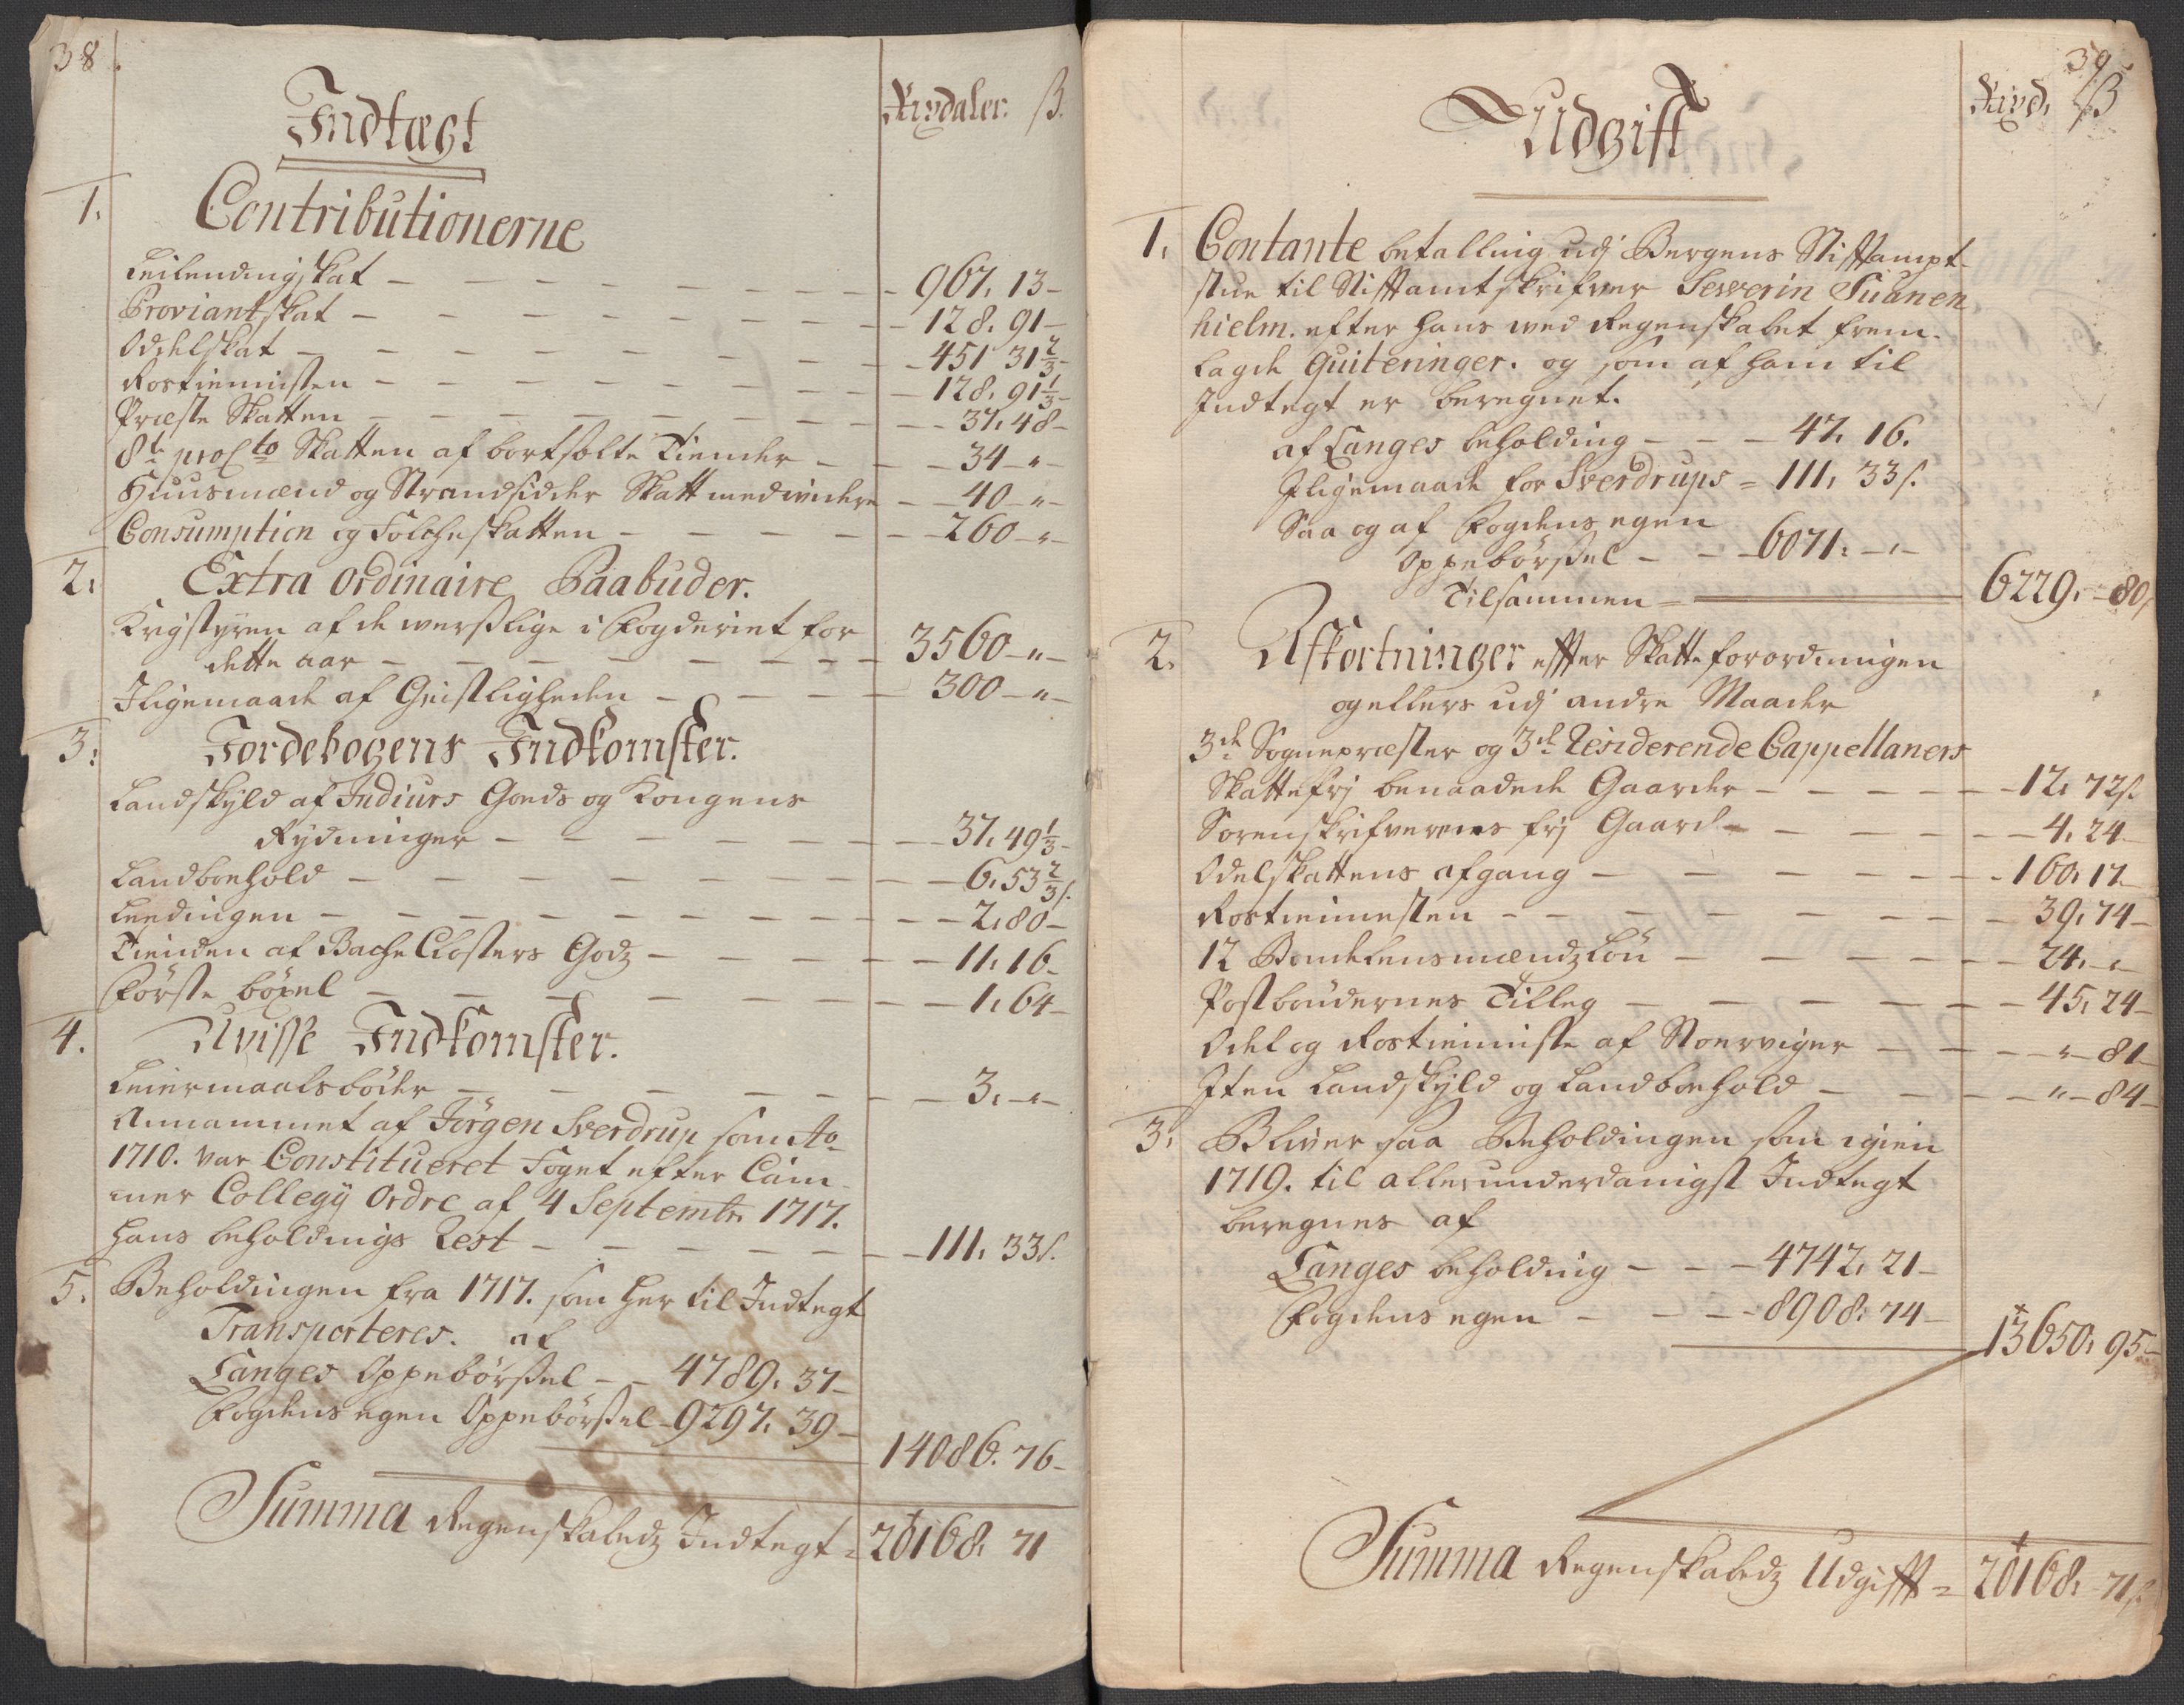 38.
Rixdaler. ß.
Indtægt
1. Contributionerne
Leilendingskat — 967. 13 —
Proviantskat — 128. 91 —
Odelskat — 451 31 2/3 —
Rostieniesten — 128. 91 1/3 —
Præste Skatten — 37. 48 —
8te proCto Skatten af bortsolte Tiender — 34 — " —
Huusmænd og Strandsidder Skatt med videre — 40 — " —
Consumption og Folcheskatten — 260 — " —
2. Extra Ordinaire Paabuder.
Krigstyren af de werßlige i Fogderiet for
dette aar — 3560 — " —
Iligemaade af Geistligheden — 300 — " —
3. Jordebogens Indkomster.
Landskyld af Indiurs Goeds og Kongens
Rydninger — 37. 49 1/3 —
Landboehold — 6. 53 2/3 ß.
Leedingen — 2. 80 —
Tienden af Bache Closters Godz — 11. 16 —
Første böxel — 1. 64 —
4. Uvisse Indkomster.
Leiermaalsböder — 3. — " —
Annammet af Jörgen Sverdrup som Ao
1710. var Constitueret Foget efter Cam-
mer Collegy Ordre af 4 Septembr 1717.
hans beholdnings Rest — 111. 33 ß.
5. Beholdingen fra 1717. som her til Indtegt
Transporteres. af
Langes Oppebörßel — 4789. 37 —
Fogdens egen Oppebörßel — 9297. 39 —
14086. 76 —
Summa Regenskabedz Indtegt = 20168. 71
39
Rixd. ß
Udgift
1. Contante betalling udj Bergens Stifftampt-
stue til Stifftamtskrifver Severin Suanen
hielm. efter hans wed Regenskabet frem-
lagde Quiteringer. og som af ham til
Indtegt er beregnet.
af Langes beholding — 47. 16.
Iligemaade for Sverdrups = 111. 33 ß.
Saa og af Fogdens egen
Oppebörßel — 6071. — " —
Tilsammen — 6229. — 80,
2. Afkortninger effter Skatte forordningen
og ellers udj andre Maader
3de Sognepræster og 3de Residerende Cappellaners
Skattefrj benaadede Gaarder — 12. 72 ß.
Sorenskrifverens frj Gaard — 4. 24 —
Odelskattens afgang — 160. 17 —
Rostieniesten — 39. 74 —
12 Bondelensmændz Lön — 24. — " —
Postbøndernes Tilleg — 45. 24 —
Odel og Rostieniste af Stoerviger — " — 81 —
Item Landskyld og Landboehold — " — 84 —
3. Bliver saa Beholdingen som igien
1719. til allerunderdanigst Indtegt
beregnes af
Langes beholding — 4742. 21 —
Fogdens egen — 8908. 74 —
13650. 95 —
Summa Regenskabedz Udgifft = 20168. 71 ß.